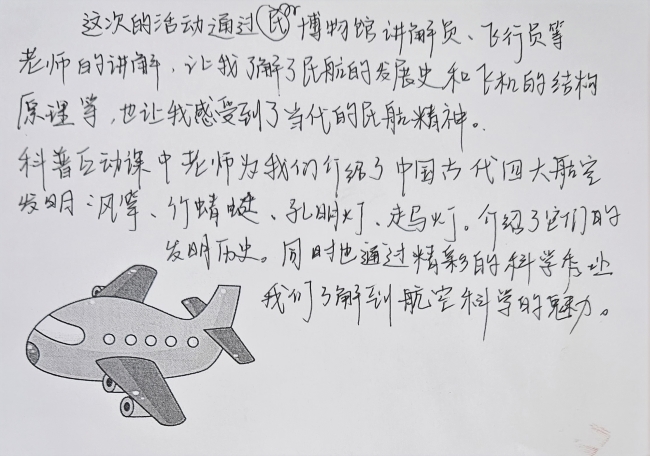 这次的活动通过民博物馆讲解员、飞行员等
老师的讲解，让我了解了民航的发展史和飞机的结构
原理等，也让我感受到了当代的民航精神。
科普互动课中老师为我们介绍了中国古代四大航空
发明：风筝、竹蜻蜓、孔明灯、走马灯。介绍了它们的
发明历史。同时也通过精彩的科学秀让
我们了解到航空科学的魅力。